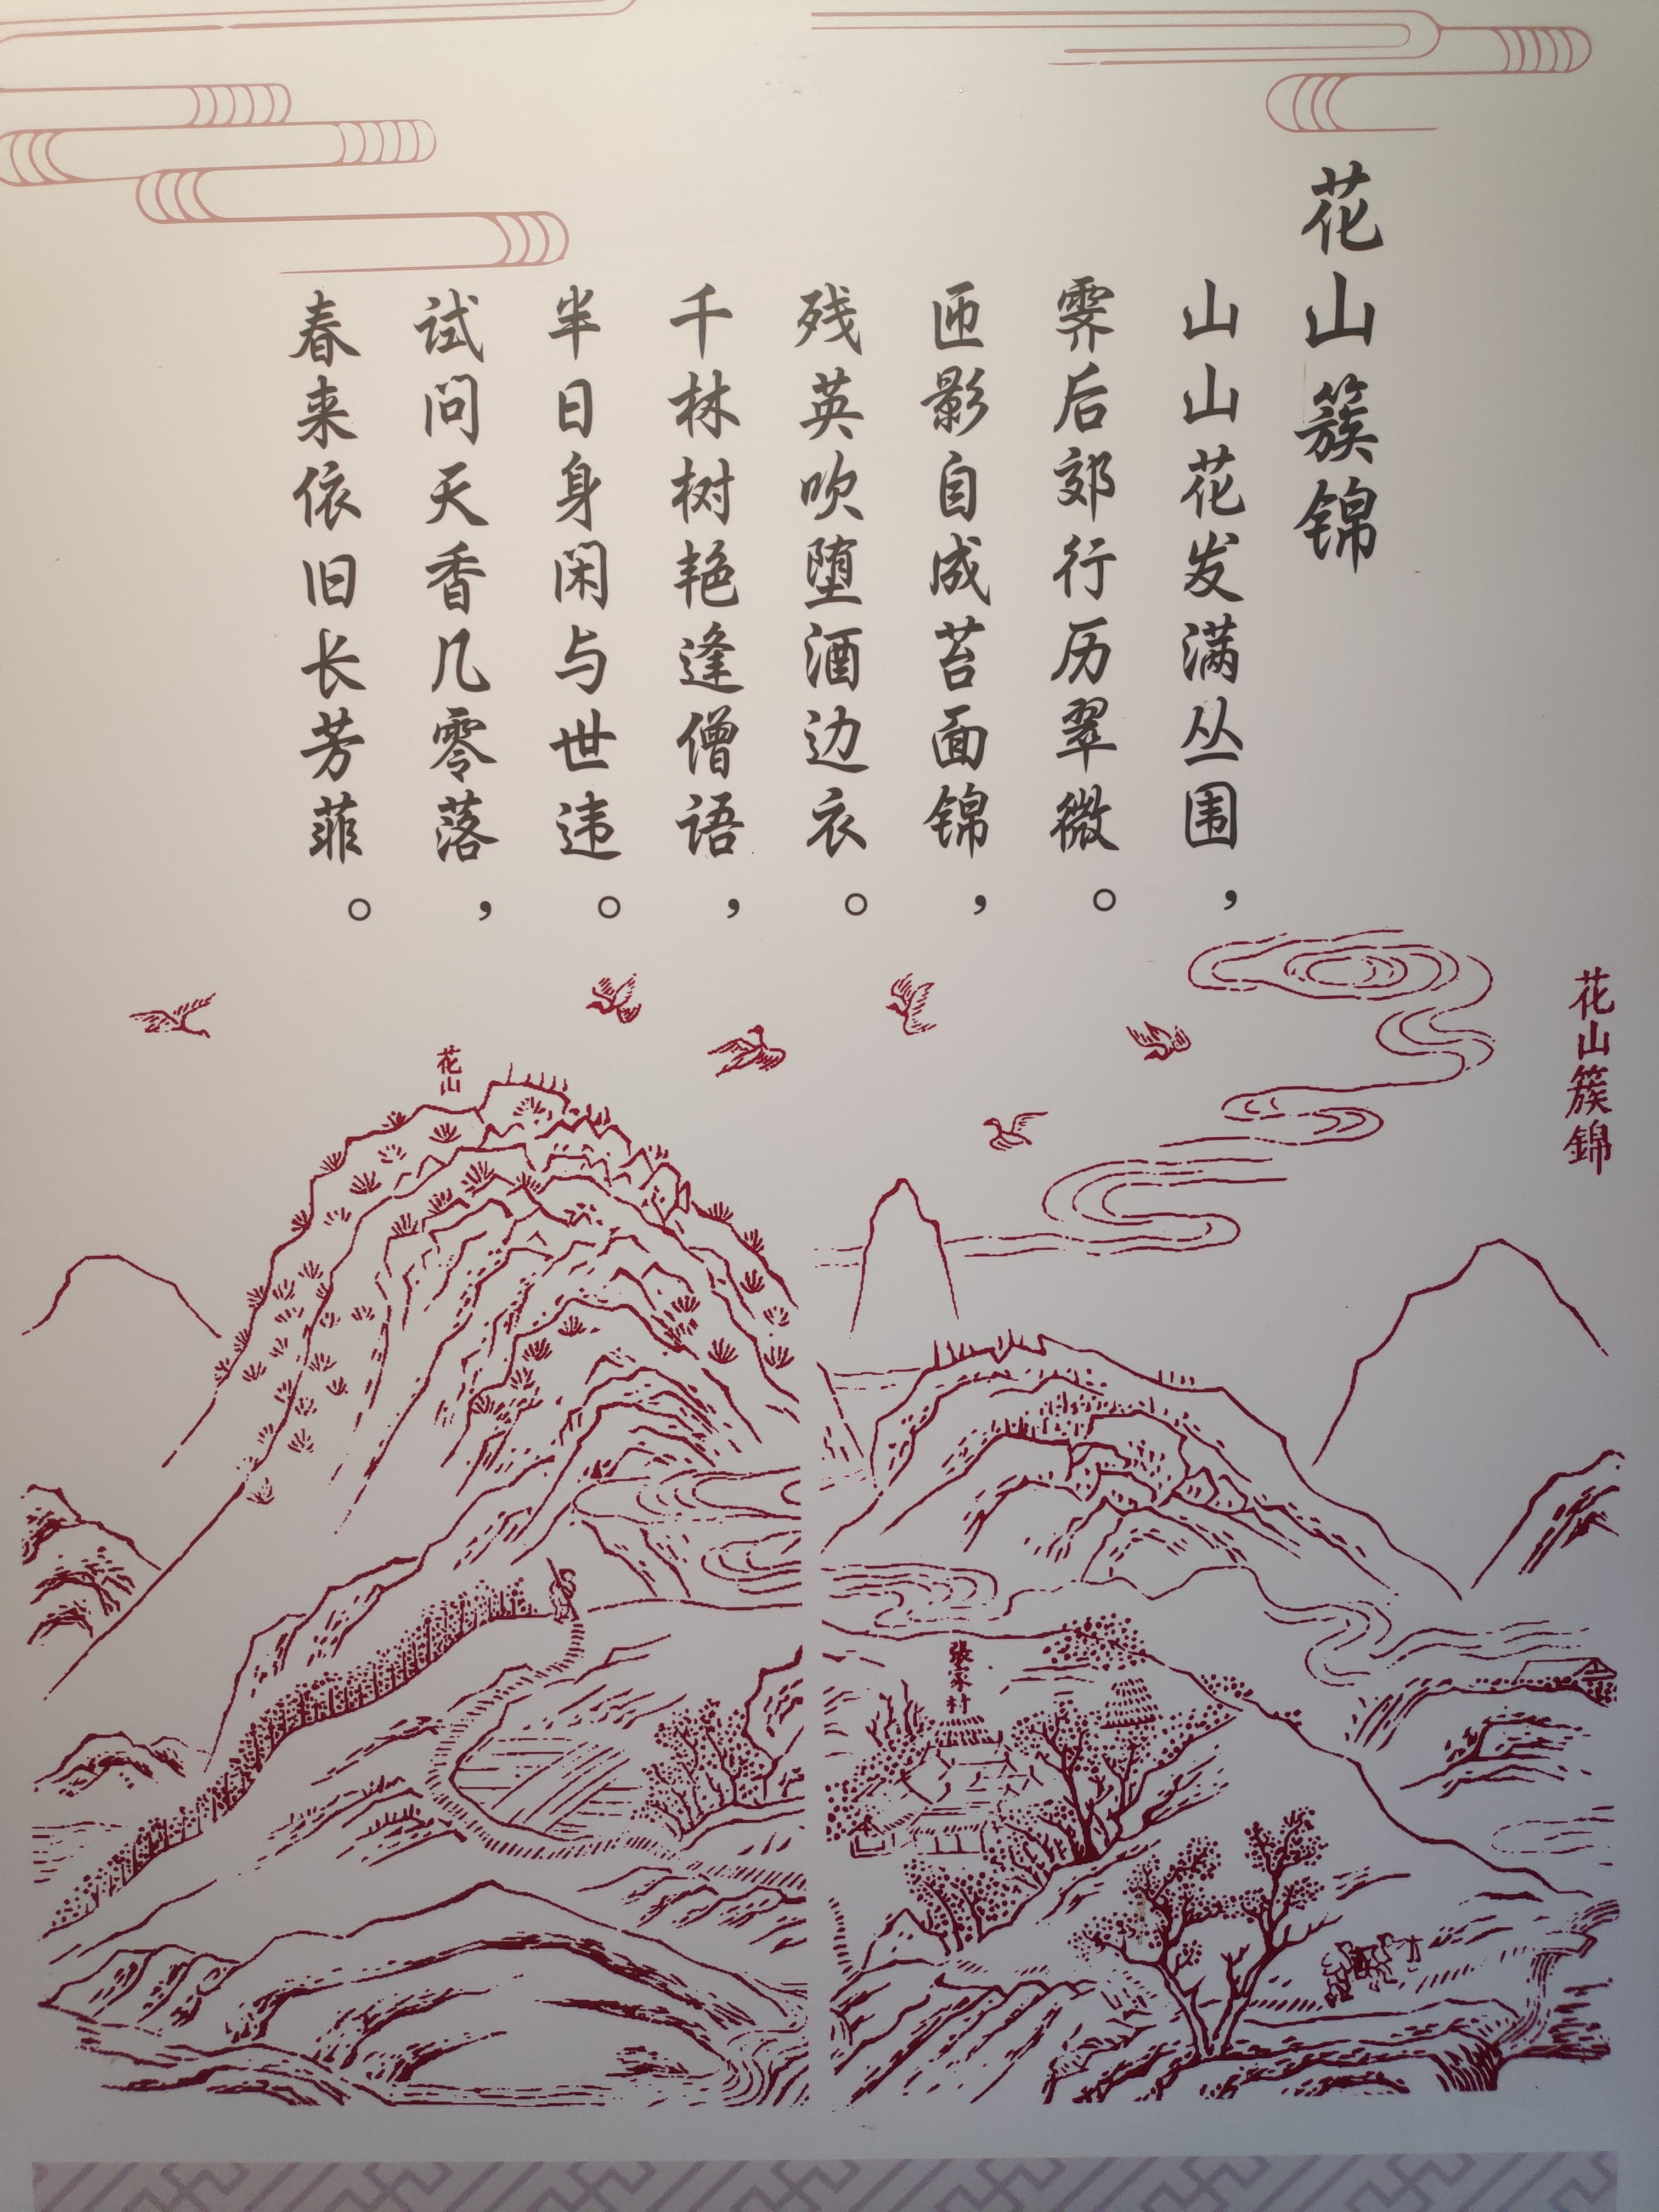 花山簇锦
山山花发满丛围，
霁后郊行历翠微。
匝影自成苔面锦，
残英吹堕酒边衣。
千林树艳逢僧语，
半日身闲与世违。
试问天香几零落，
春来依旧长芳菲。
花山簇錦
花山
張家村